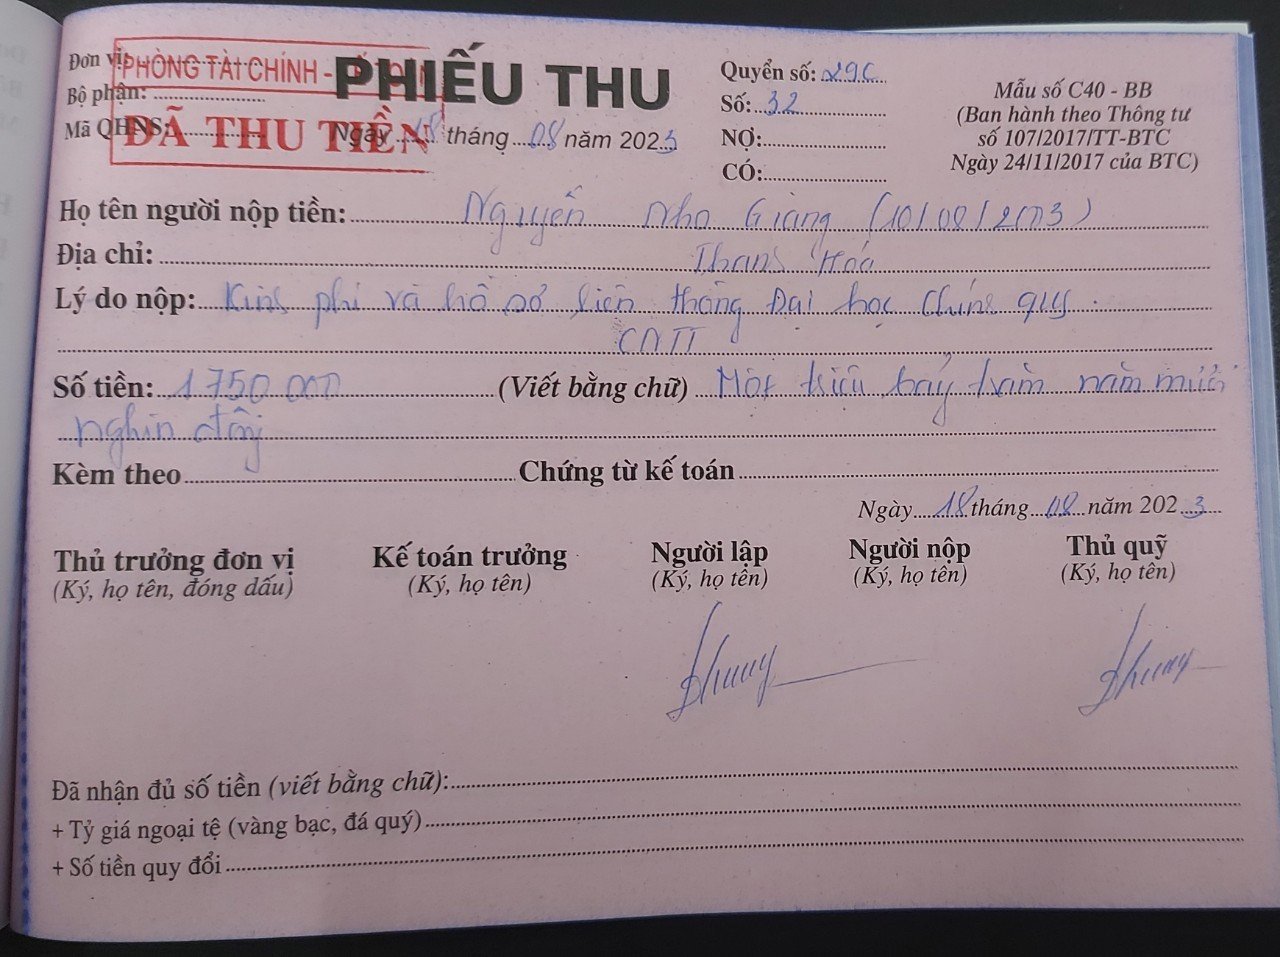 Đơn vị:
PHÒNG TÀI CHÍNH -
PHIẾU THU
Quyển số: 29C
Bộ phận:
Số: 32
Mã QHNS:
ĐÃ THU TIỀN
Ngày 18 tháng 08 năm 2023
NỢ:
CÓ:
Mẫu số C40 - BB
(Ban hành theo Thông tư
số 107/2017/TT-BTC
Ngày 24/11/2017 của BTC)
Họ tên người nộp tiền: Nguyễn Nho Giang (10/08/2003)
Địa chỉ: Thanh Hóa
Lý do nộp: Kinh phí và hồ sơ liên thông Đại học chính quy.
CNTT
Số tiền: 1750 000 (Viết bằng chữ) Một triệu bảy trăm năm mươi
nghìn đồng
Kèm theo Chứng từ kế toán
Ngày 18 tháng 08 năm 2023
Thủ trưởng đơn vị
(Ký, họ tên, đóng dấu)
Kế toán trưởng
(Ký, họ tên)
Người lập
(Ký, họ tên)
Người nộp
(Ký, họ tên)
Thủ quỹ
(Ký, họ tên)
Đã nhận đủ số tiền (viết bằng chữ):
+ Tỷ giá ngoại tệ (vàng bạc, đá quý)
+ Số tiền quy đổi